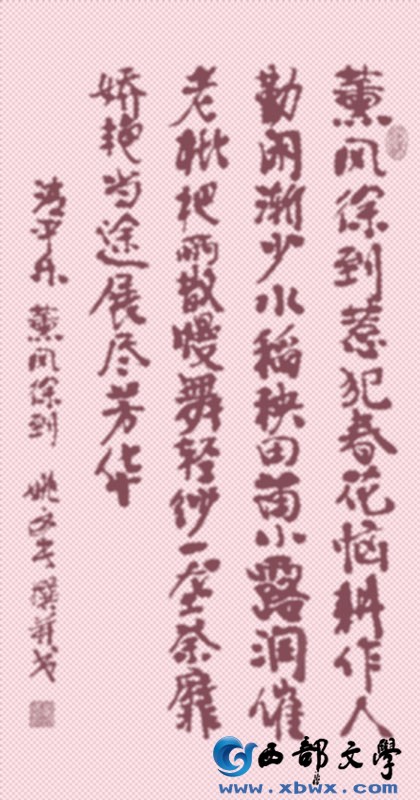 薰风徐到惹犯春花恼耕作人
勤闲渐少水稻秧田苗小露润催
老枇杷雨散慢舞轻纱一垄荼靡
娇艳当途展尽芳华
清平乐 薰风徐到 姚 撰并书
西部文学
www.xbwx.com